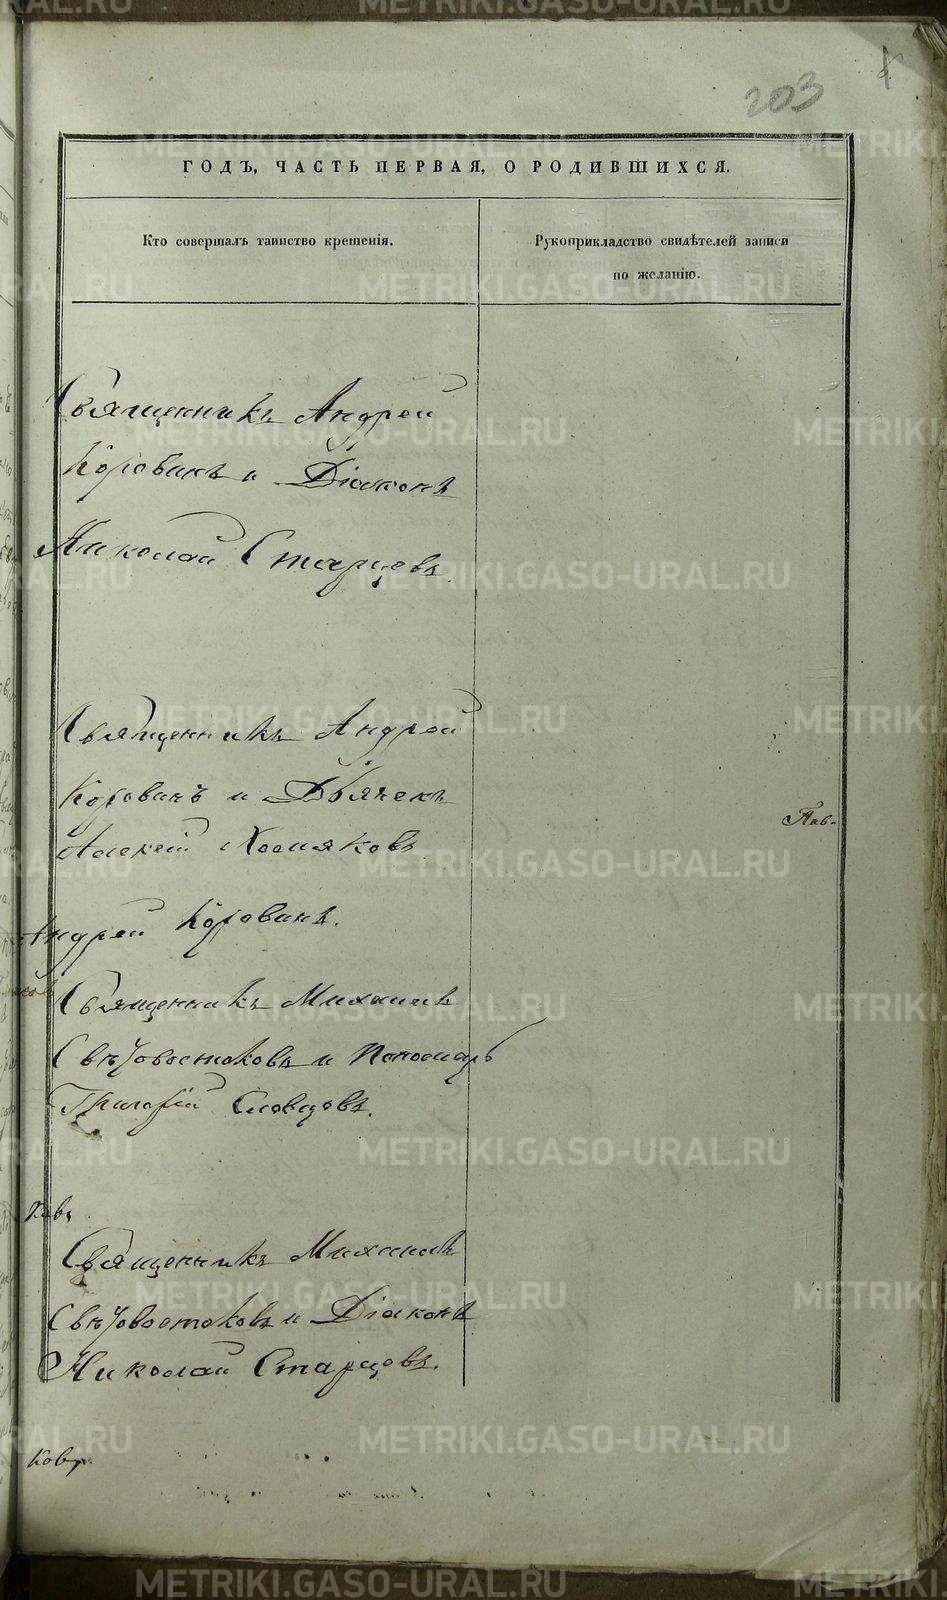 203
ГОДЪ, ЧАСТЬ ПЕРВАЯ, О РОДИВШИХСЯ.
Кто совершалъ таинство крещенія.
Рукоприкладство свидѣтелей записи
по желанію.
Священникъ Андрей
Коровинъ и Діаконъ
Николай Старцовъ.
Священникъ Андрей
Коровинъ и Дьячекъ
Алексѣй Хомяковъ
Андрей Коровинъ.
Священникъ Михаилъ
Свѣтовостоковъ и Пономарь
Словцовъ.
Ковъ
Священникъ Михаилъ
Свѣтовостоковъ и Діаконъ
Николай Старцовъ.
Пав-
METRIKI.GASO-URAL.RU